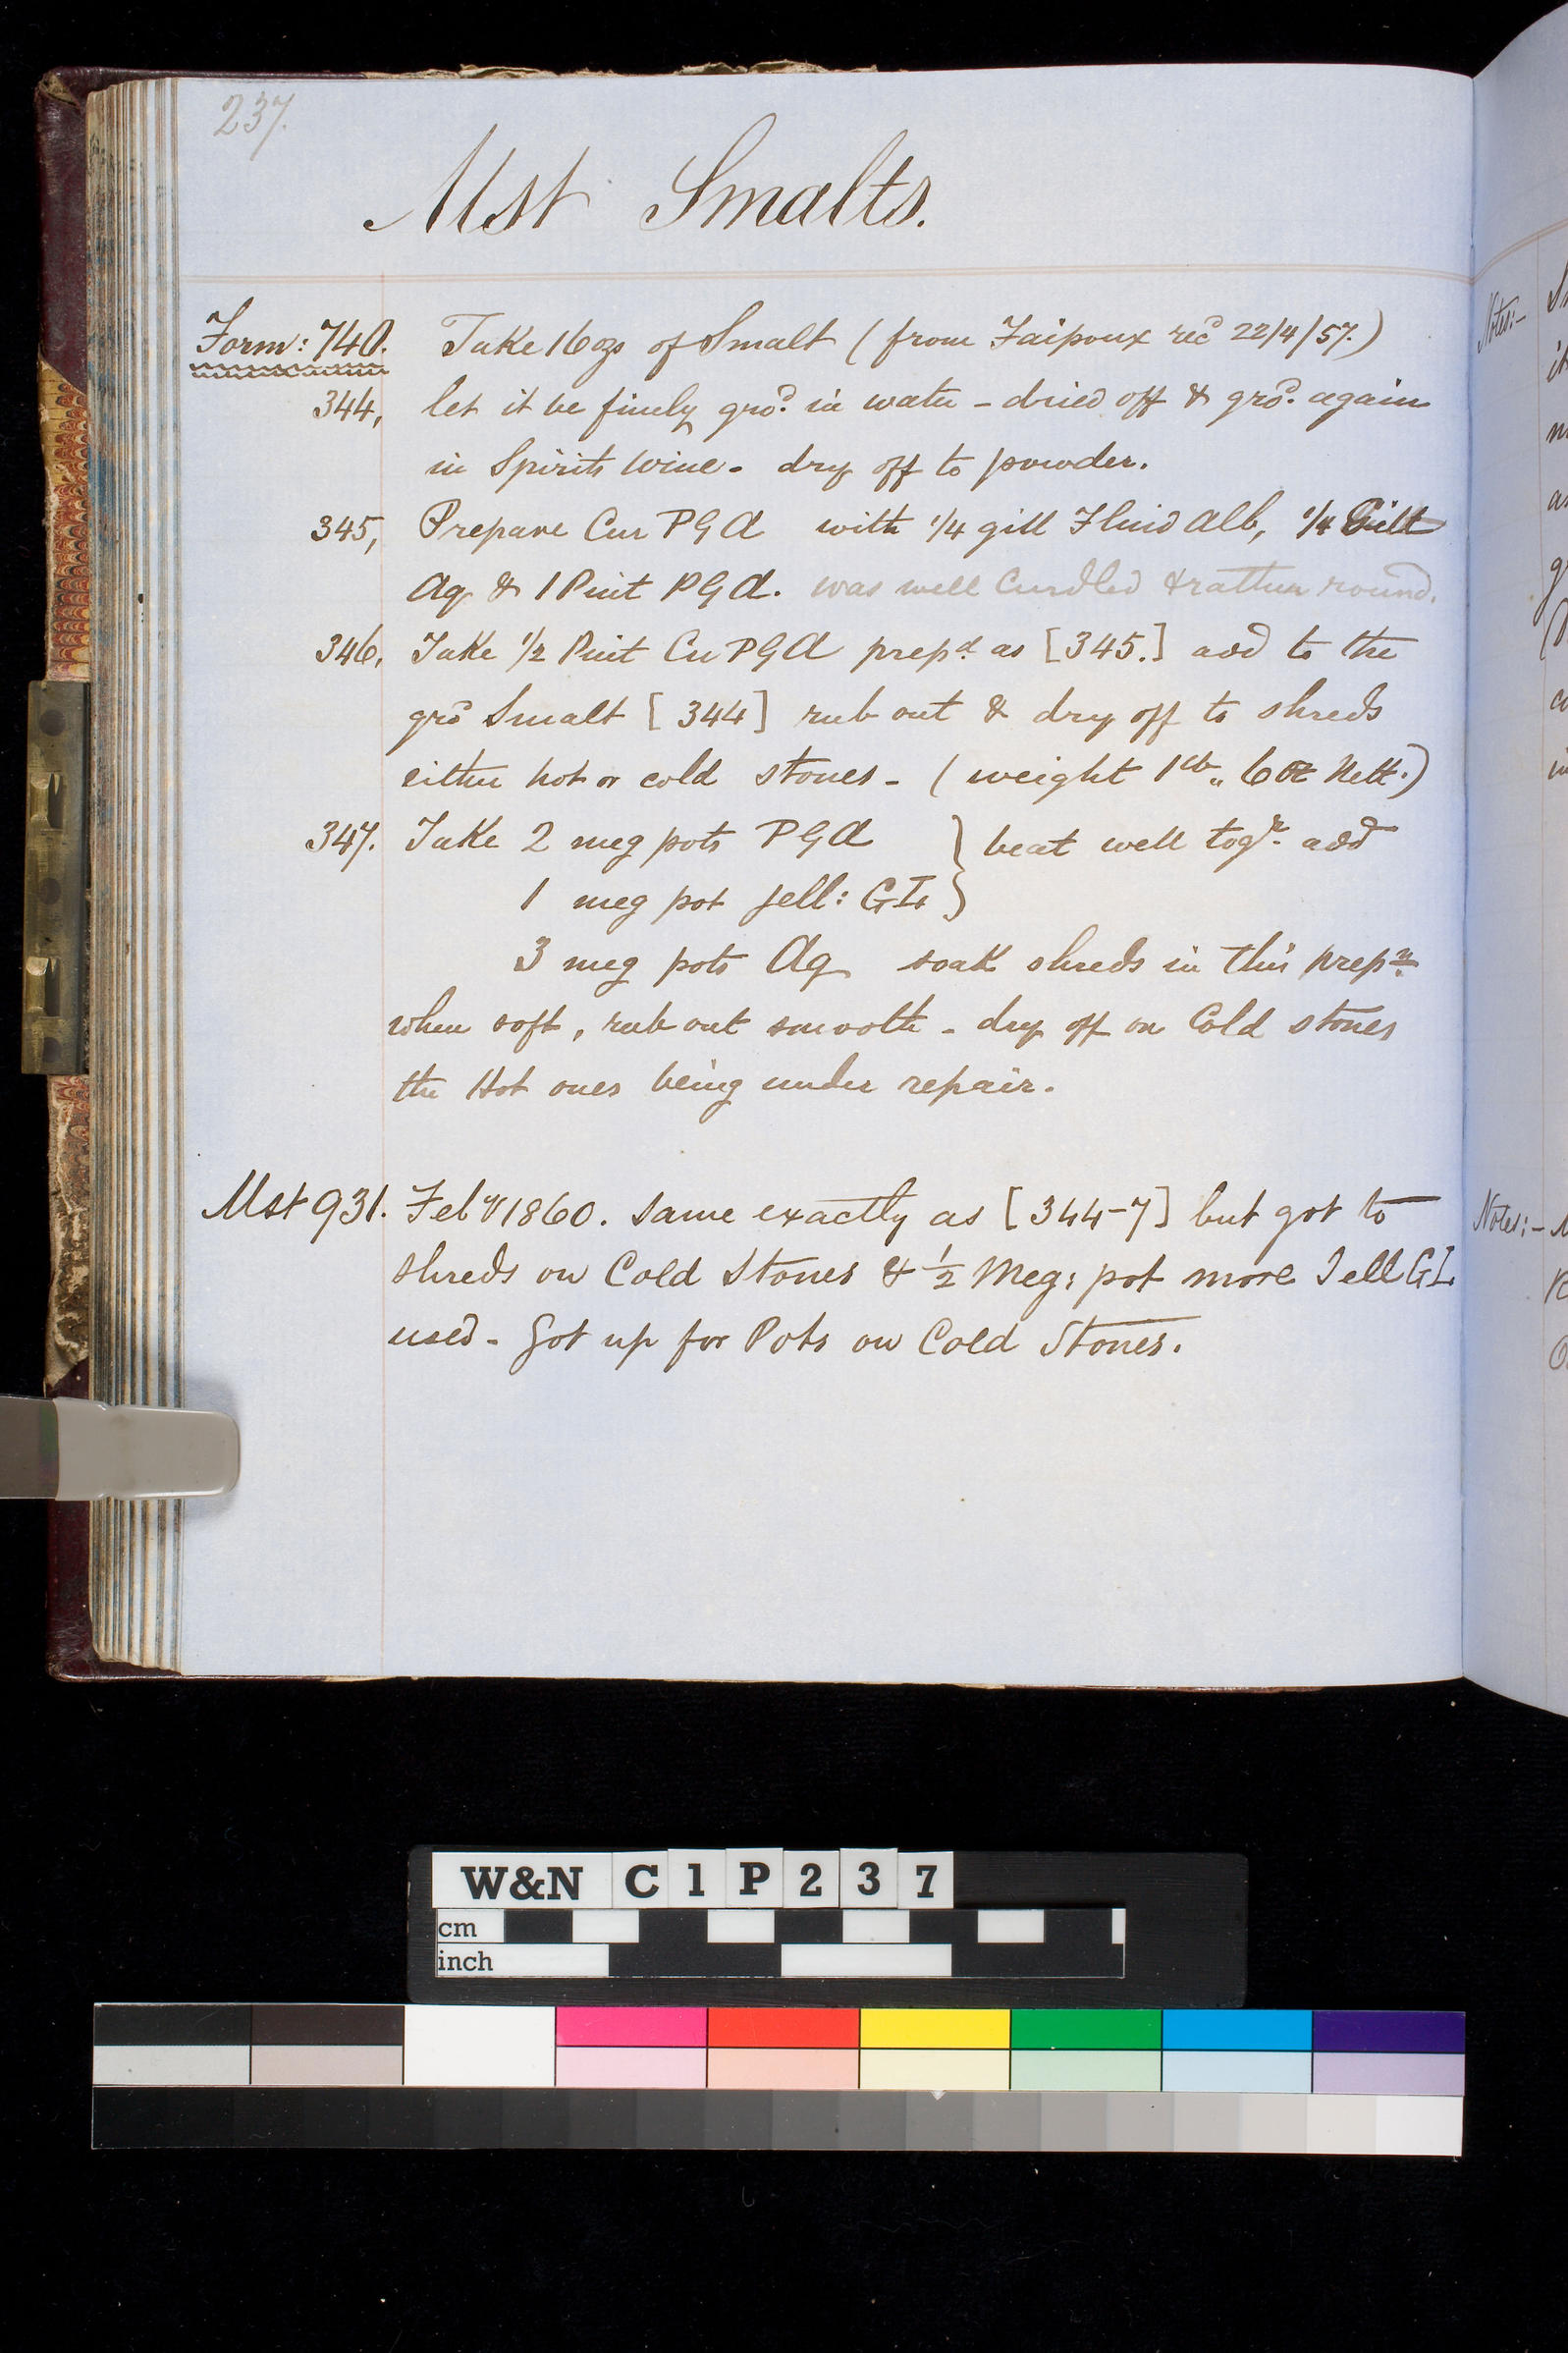 237.
Mst Smalts.
Form: 740. Take 16 ozs of Smalt (from Faipoux recd 22/4/57.)
344, let it be finely grod. in water - dried off & grod. again
in Spirits Wine - dry off to powder.
345, Prepare Cur PGA with 1/4 gill Fluid Alb, 1/4 Gill
Aq & 1 Pint PGA. was well Curdled & rather round.
346, Take 1/2 Pint Cu PGA prepd. as [345.] add to the
grd Smalt [344] rub out & dry off to shreds
either hot or cold stones - (weight 1lb „ 6 oz Nett.)
347. Take 2 meg pots PGA } beat well togr. add
1 meg pot Jell: GI. }
3 meg pots Aq soak shreds in this prepn.
when soft, rub out smooth - dry off on Cold stones
the Hot ones being under repair.
Mst 931. Feby 1860. Same exactly as [344-7] but got to
shreds on Cold Stones & 1/2 Meg: pot more Jell GI.
used - Got up for Pots on Cold Stones.
Notes:-
Notes:-
W&N C 1 P 2 3 7
cm
inch